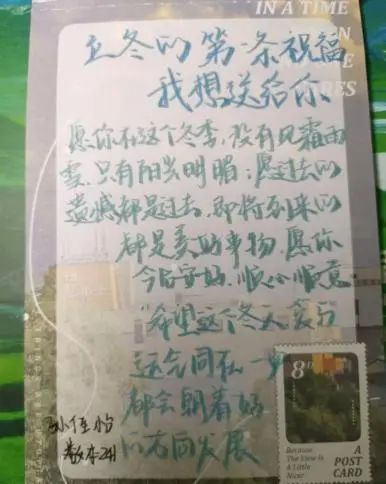 IN A TIME
立冬的第一条祝福
我想送给你
愿你在这个冬季,没有风霜雨
雪,只有阳光明媚;愿过去的
遗憾都是过去,即将到来的
都是美好事物,愿你
今后安好,顺心顺意
"希望这个冬天爱与
运会同在 一
都会朝着好
的方向发展
8D
Because
The View Is
A Little
Nicer
A
POST
CARD